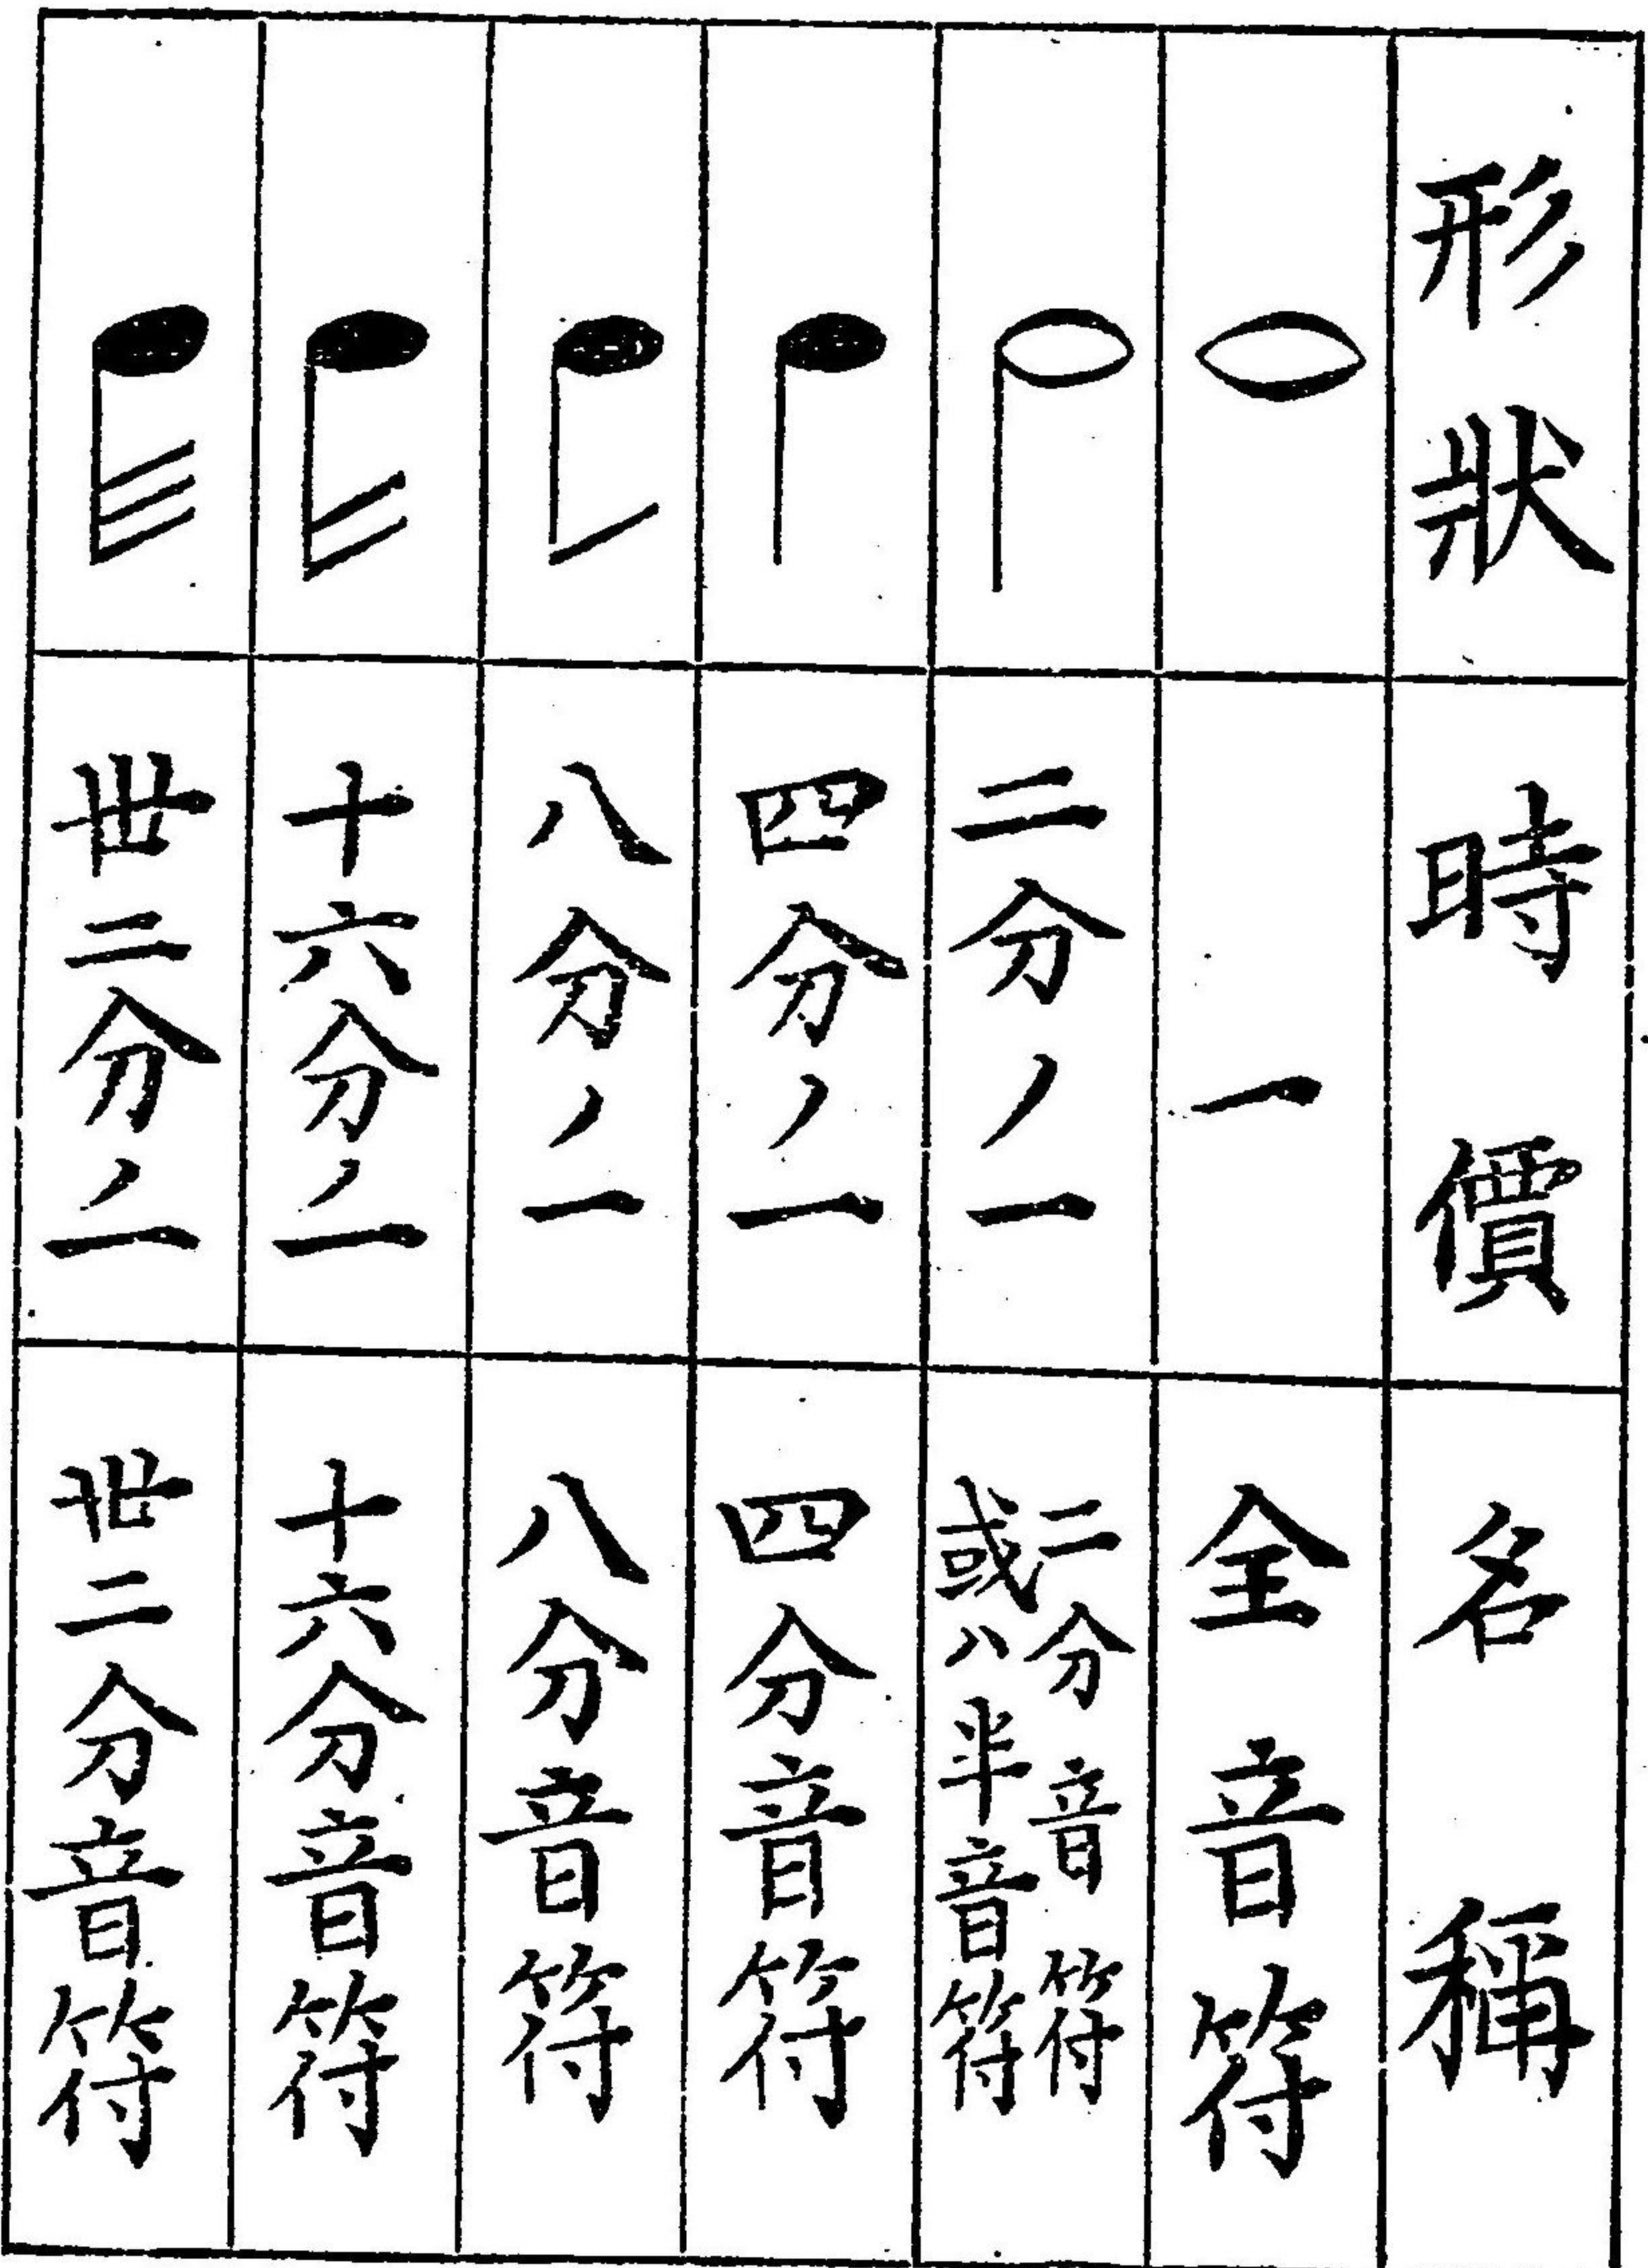 形狀
時價
名稱
一
全音符
二分ノ一
二分音符
或ハ半音符
四分ノ一
四分音符
八分ノ一
八分音符
十六分ノ一
十六分音符
丗二分ノ一
丗二分音符